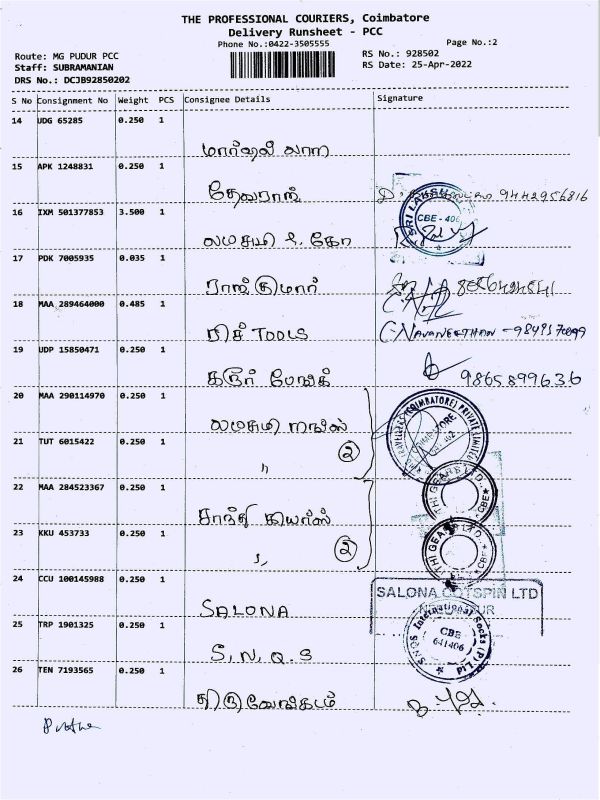 THE PROFESSIONAL COURIERS, Coimbatore
Delivery Runsheet - PCC
Phone No.:0422-3505555
Page No.:2
Route: MG PUDUR PCC
RS No.: 928502
Staff: SUBRAMANIAN
RS Date: 25-Apr-2022
DRS No.: DCJB92850202
S No Consignment No Weight PCS Consignee Details Signature
14 UDG 65285 0.250 1
15 APK 1248831 0.250 1
தேவராஜ் 9442956816
16 IXM 501377853 3.500 1
SRI LAKSHMI
CBE - 406
லட்சுமி & கோ
17 PDK 7005935 0.035 1
ராஜ்குமார்
18 MAA 289464000 0.485 1
ரிச் TOOLS
19 UDP 15850471 0.250 1
கரூர் 9865899636
20 MAA 290114970 0.250 1
லட்சுமி
(COIMBATORE) PRIVATE LIMITED
COIMBATORE
21 TUT 6015422 0.250 1
" 2
22 MAA 284523367 0.250 1
THI GEARS LTD.
CBE
சாந்தி கியர்ஸ்
23 KKU 453733 0.250 1
THI GEARS LTD.
CBE
" 2
24 CCU 100145988 0.250 1
SALONA COTSPIN LTD
SALONA
25 TRP 1901325 0.250 1
SNQS International Socks (P) Ltd
CBE
641406
S.N.Q.S
26 TEN 7193565 0.250 1
திருவேங்கடம்